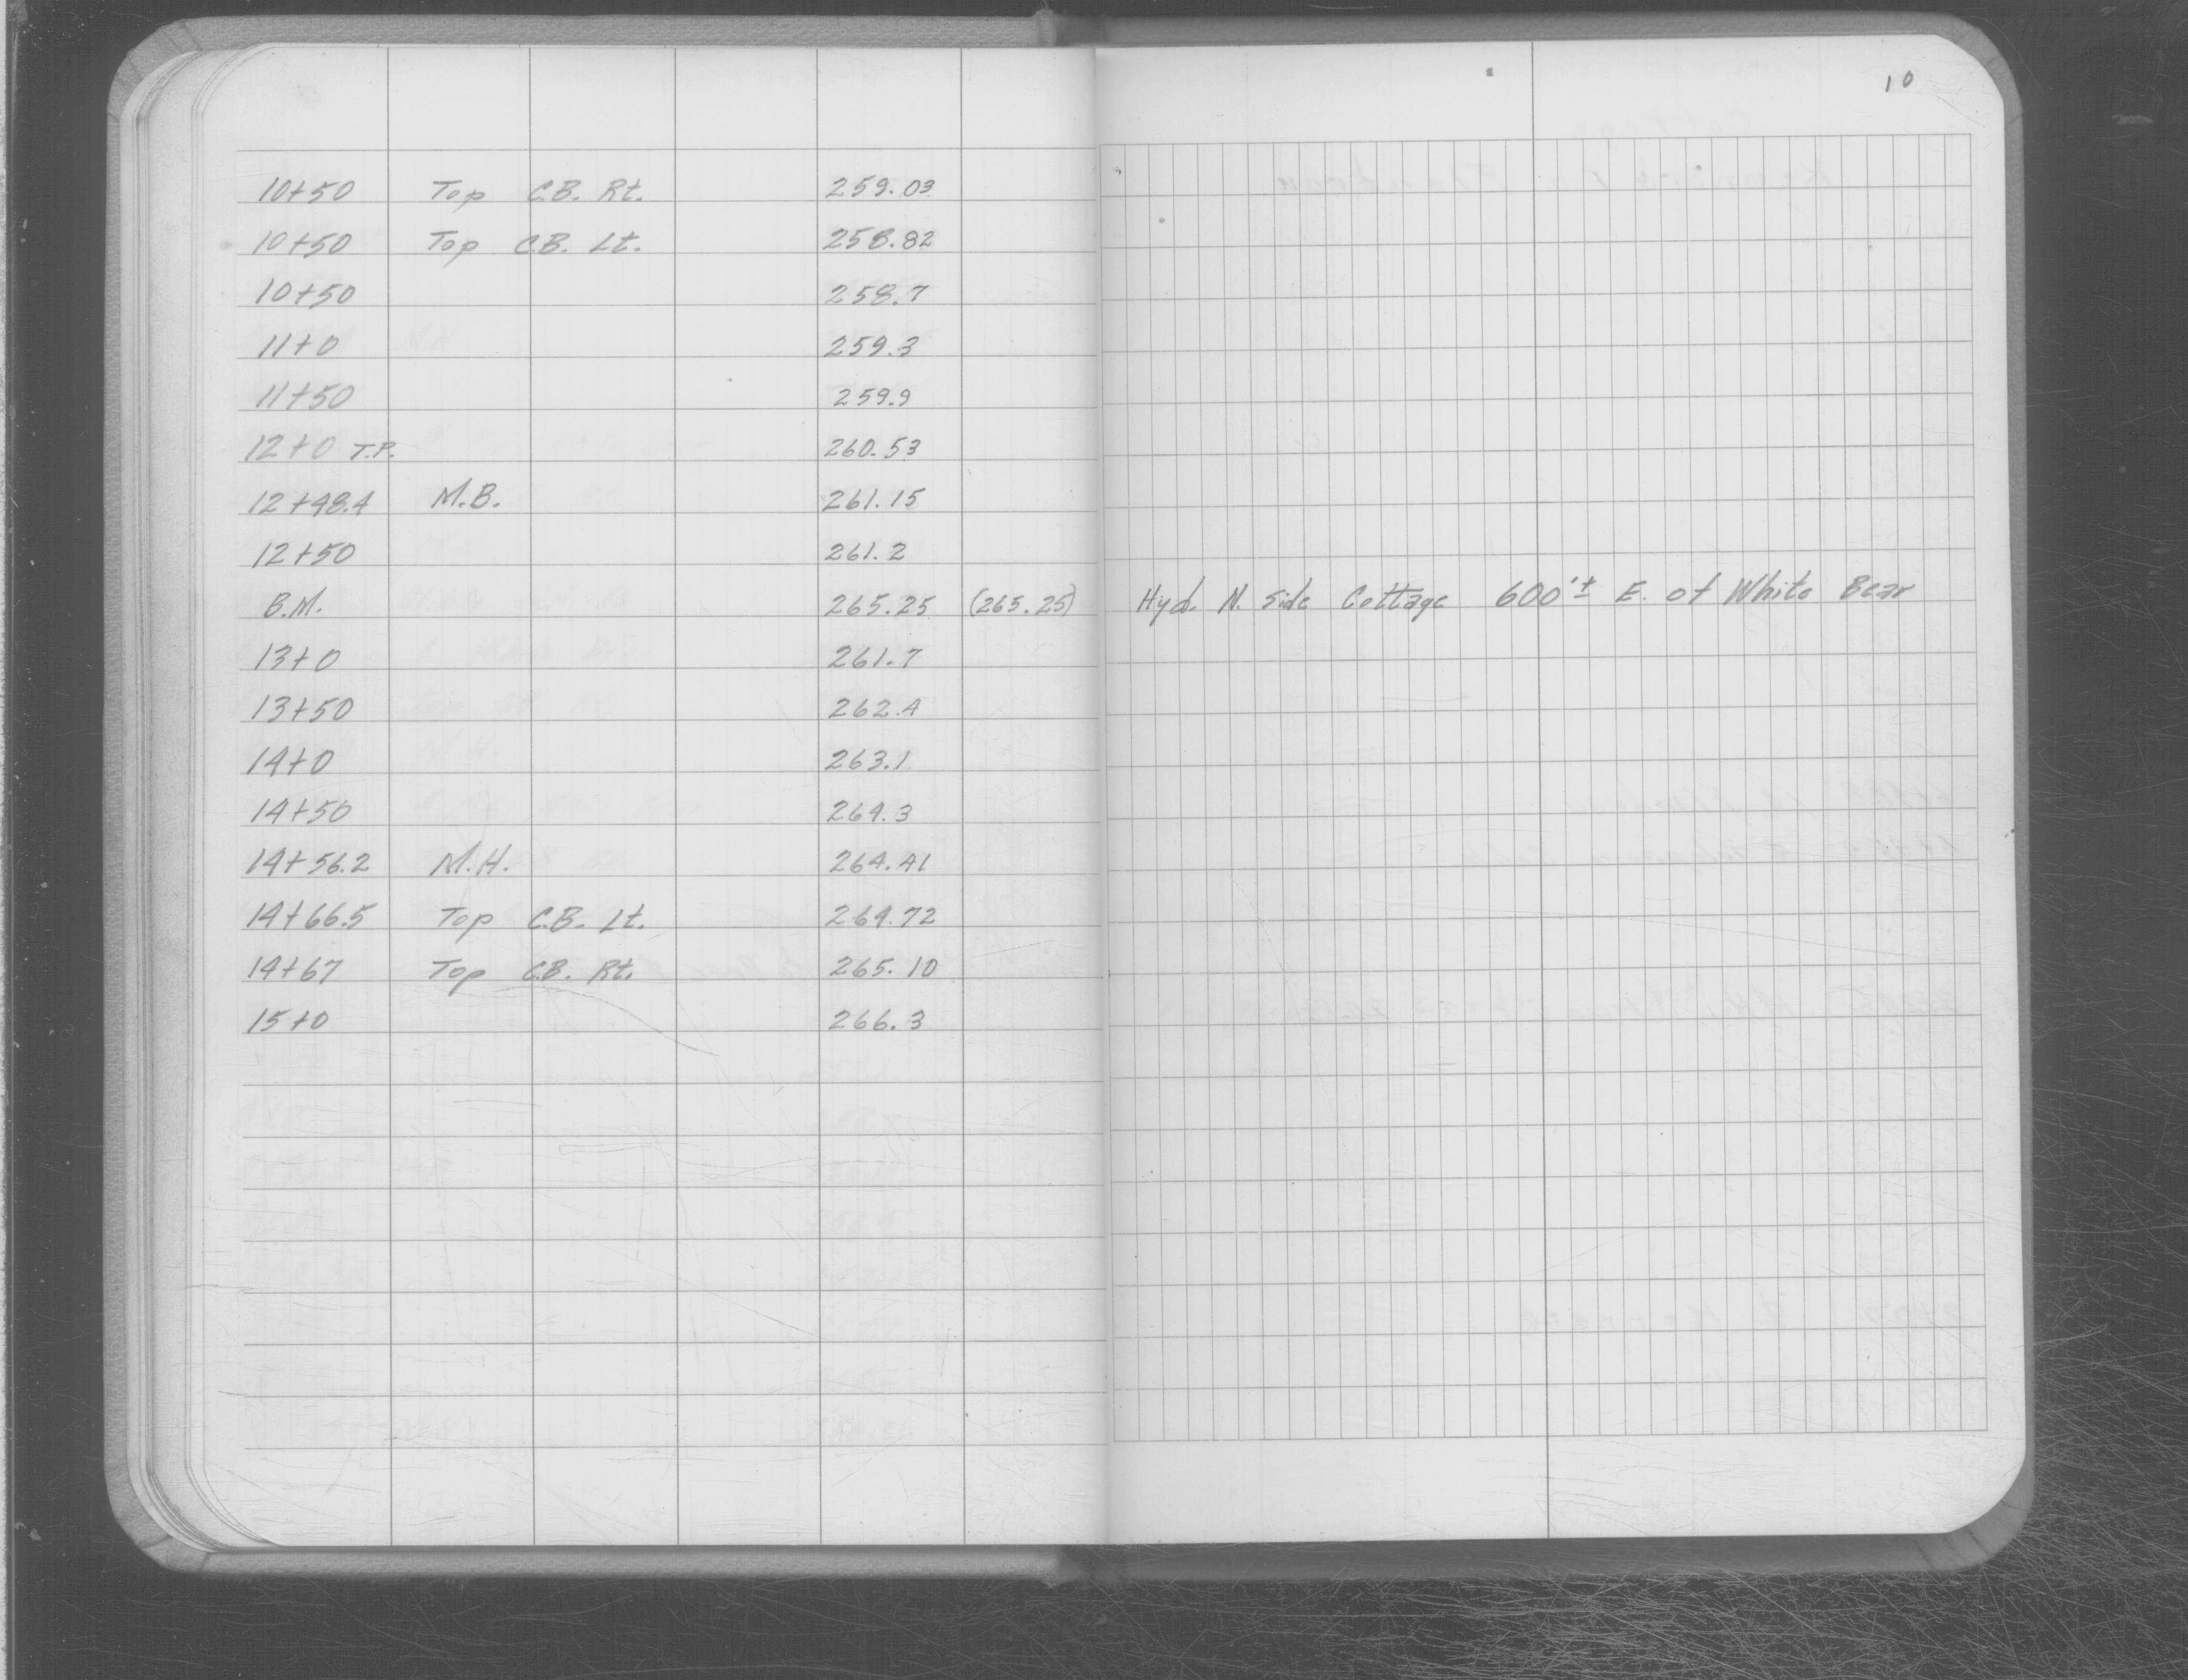 10
10+50 Top C.B. Rt. 259.03
10+50 Top C.B. Lt. 258.82
10+50 258.7
11+0 259.3
11+50 259.9
12+0 T.P. 260.53
12+48.4 M.B. 261.15
12+50 261.2
B.M. 265.25 (265.25) Hyd. N. Side Cottage 600'± E. of White Bear
13+0 261.7
13+50 262.4
14+0 263.1
14+50 264.3
14+56.2 M.H. 264.41
14+66.5 Top C.B. Lt. 264.72
14+67 Top C.B. Rt. 265.10
15+0 266.3